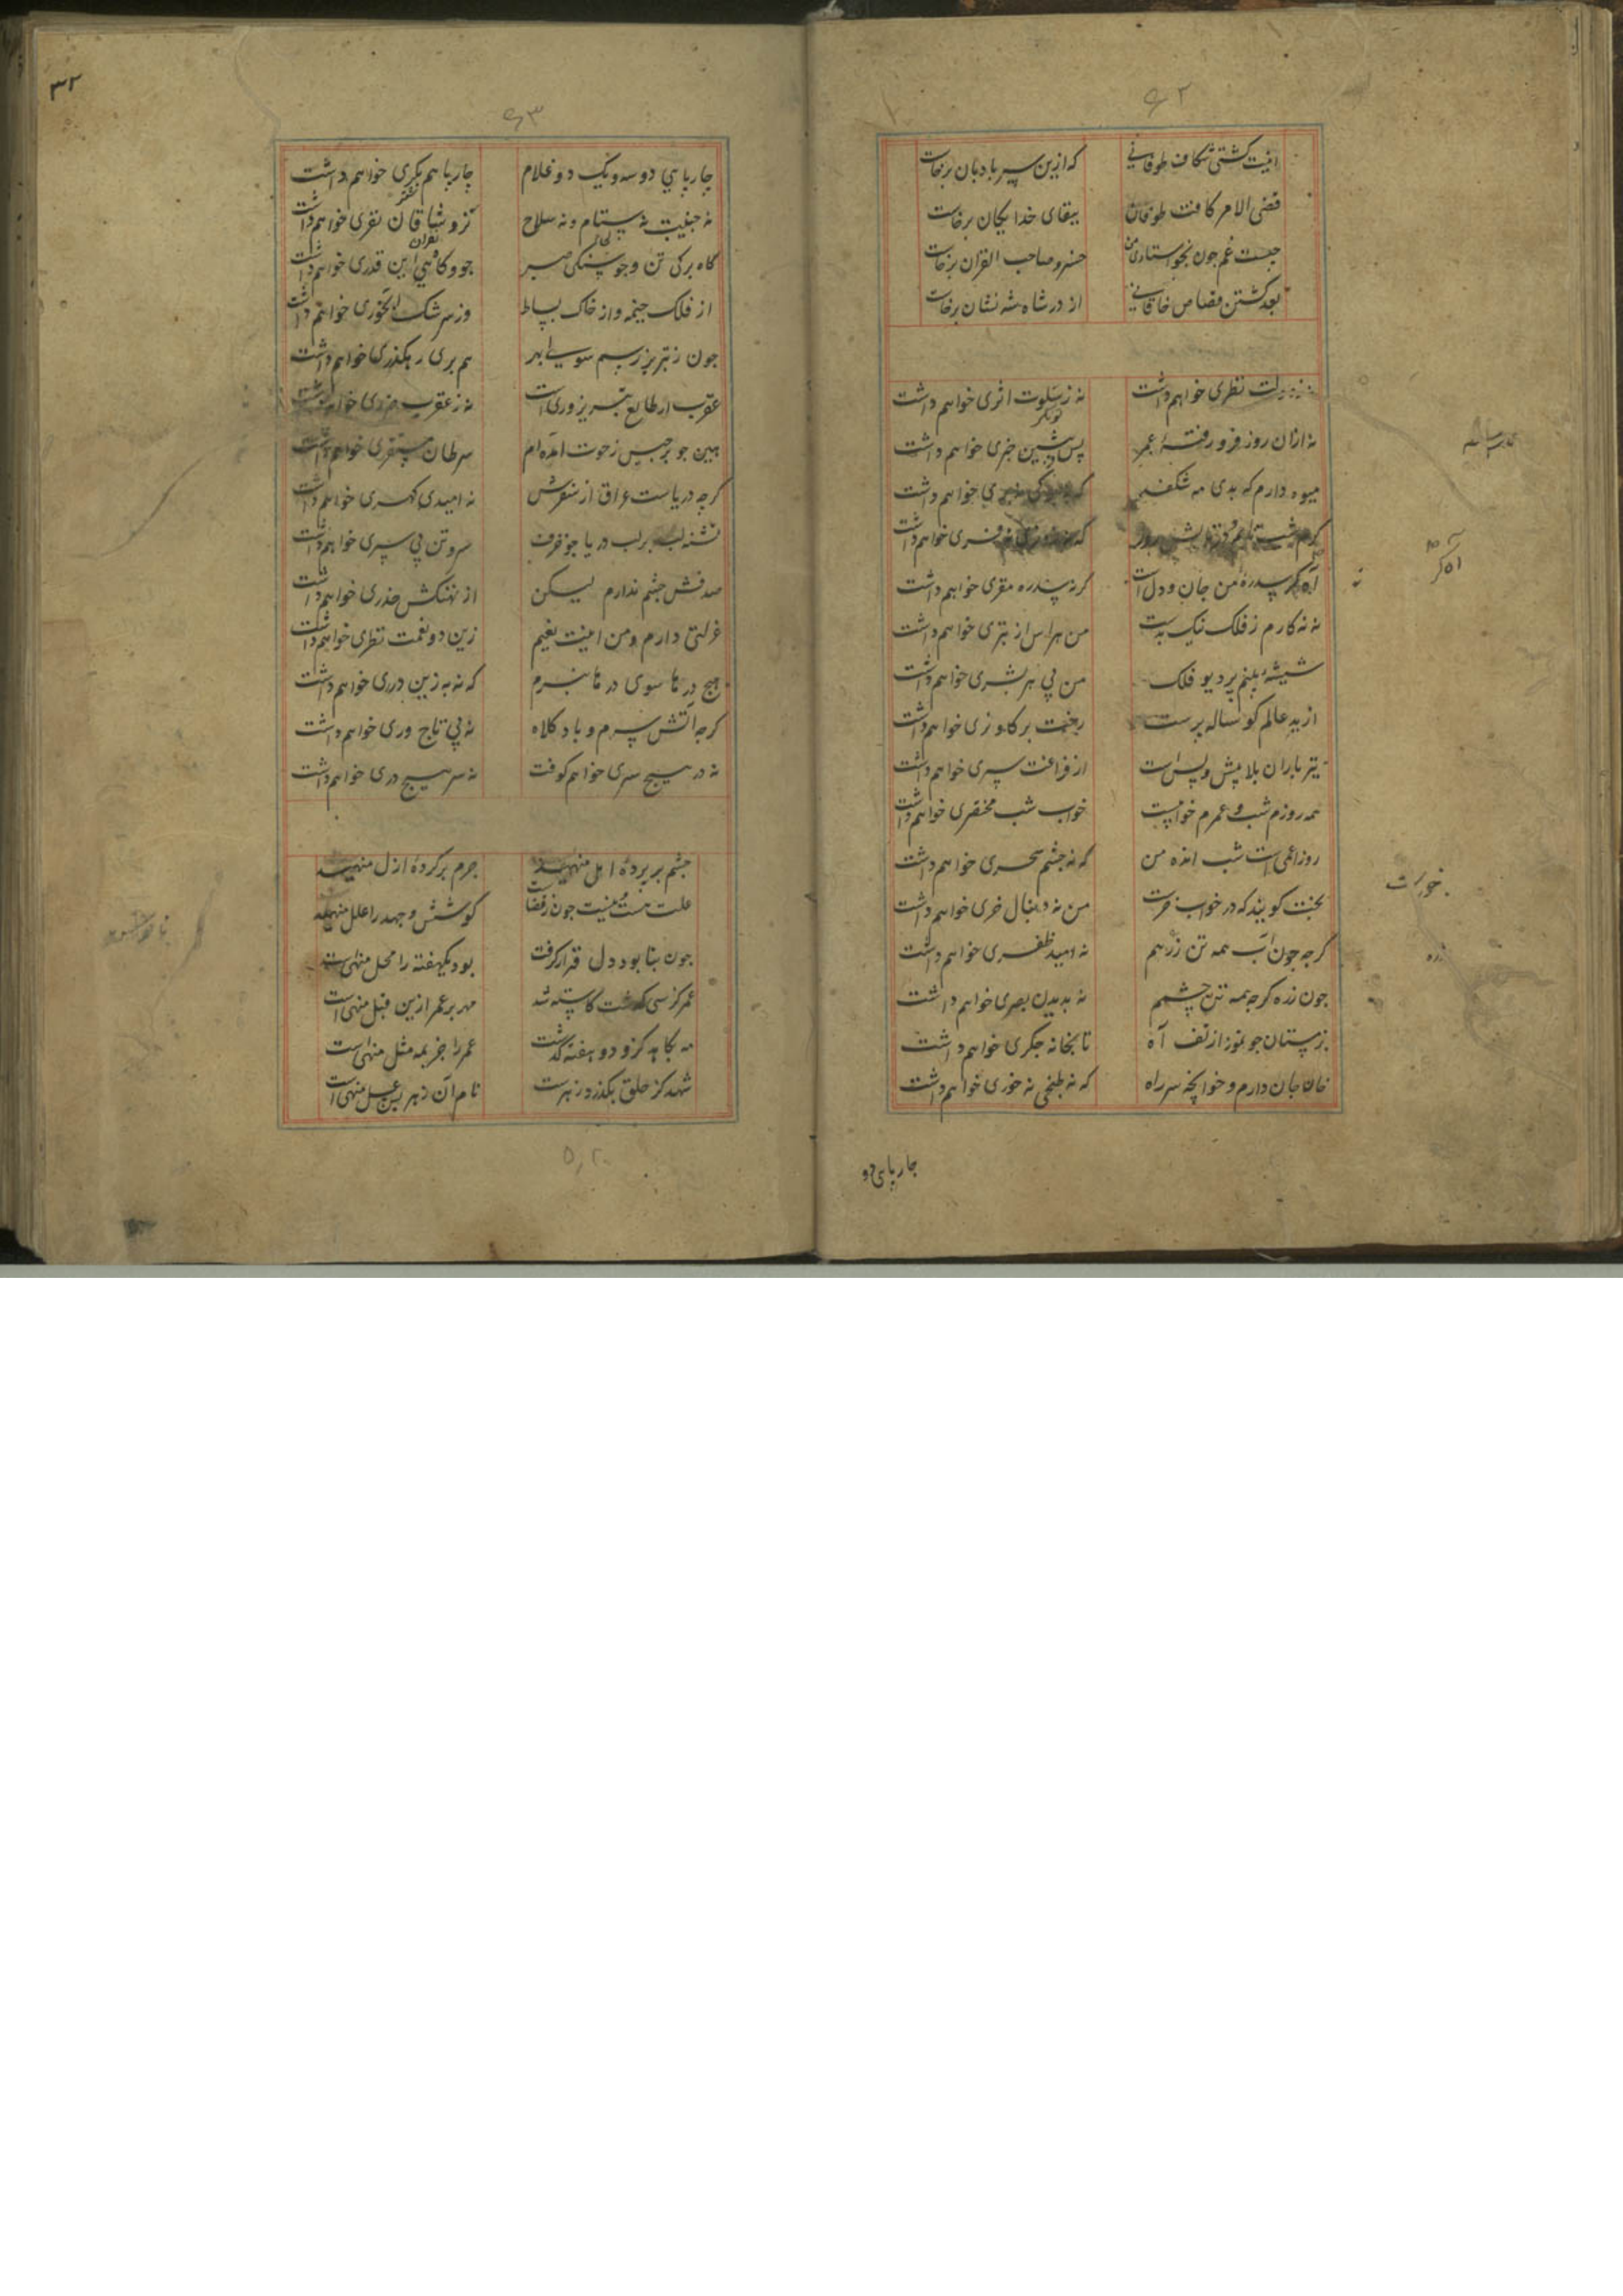 ۶۲
اینت کشتی شکاف طوفانی که ازین سپر بادبان برخاست
قضی الامر کافت طوفان ببقای خدایکان برخاست
چیست غم چون بخواستاری من خسرو صاحب القران برخاست
بعد کشتن قصاص خاقانی از در شاه شه نشان برخاست
نه ز دولت نظری خواهم داشت نه ز سلوت اثری خواهم داشت
نه ازان روز فرو رفتهٔ عمر پس پیشین خبری خواهم داشت
میوه دارم که بدی مه شکفم که خواهم داشت
خواهم داشت
آه اگر سدرهٔ من جان و دل است کر نه سدره مقری خواهم داشت
نه نه کارم ز فلک نیک بدست من هراس از بتری خواهم داشت
شیشهٔ بینم پر دیو فلک من پی هر بشری خواهم داشت
از بد عالم کوساله پرست رخت بر کاو زی خواهم داشت
تیر باران بلا پیش و پس است از فراغت سپری خواهم داشت
همه روزم شب و عمرم خوابست خواب شب مختصری خواهم داشت
روز اعمی است شب انده من که نه چشم سحری خواهم داشت
بخت کویند که در خواب خرست من نه دنبال خری خواهم داشت
کرچه چون آب همه تن زرهم نه امید ظفری خواهم داشت
چون زره کرچه همه تن چشمم نه بدیدن بصری خواهم داشت
بزمستان چو تموز از تف آه تابخانه جکری خواهم داشت
خان جان دارم و خوانچه سر راه که نه طبخی نه خوری خواهم داشت
چار پای دو
آه کر
خورست
زره
۳۲
۶۳
چارپایی دو سه و یک دو غلام چارپا هم بکری خواهم داشت
نه جنیبت نه ستام و نه سلاح نز وشاقان نفری خواهم داشت
کاه برکی تن و جو سنکی صبر جو و کاهی این قدری خواهم داشت
از فلک خیمه و از خاک بساط وز سرشک آبخوری خواهم داشت
چون ز تبریز رسم سوی اهر هم بری رهکذری خواهم داشت
عقرب ار طالع تبریز وری است نه ز عقرب ضرری خواهم داشت
بین چو برجیس ز حوت آمده ام سرطان مستقری خواهم داشت
کرچه دریاست عراق از سفرش نه امیدی کهری خواهم داشت
تشنه لب بر لب دریا چو صدف سر و تن پی سپری خواهم داشت
صدفش چشم ندارم لیکن از نهنکش حذری خواهم داشت
عزلتی دارم و من اینت نعیم زین دو نعمت نظری خواهم داشت
هیچ درها سوی درها نبرم که نه به زین درری خواهم داشت
کرچه آتش سرم و باد کلاه نه پی تاج وری خواهم داشت
نه در هیچ سری خواهم کوفت نه سر هیچ دری خواهم داشت
چشم بر پردهٔ امل منهید جرم بر کردهٔ ازل منهید
علت هست و نیست چون ز قضاست کوشش و جهد را علل منهید
چون بنا بود دل قرار کرفت بود یکهفته را محل منهید
عمر کز سی کذشت کاسته شد مهر بر عمر ازین قبل منهید
مه بکاهد کز و دو هفته کذشت عمر را جز بمه مثل منهید
شهد کز حلق بکذرد زهرست نام آن زهر پس عسل منهید